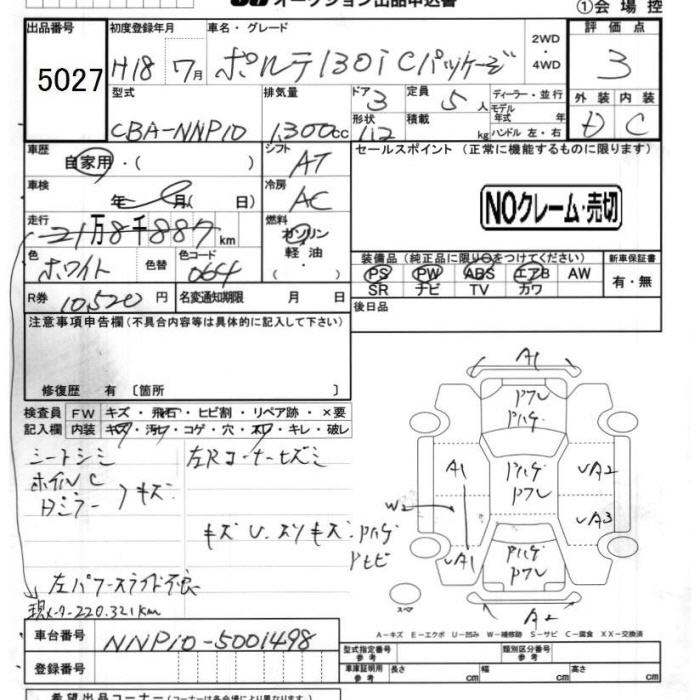 オークション出品申込書
①会場控
出品番号 初度登録年月 車名・グレード 2WD・4WD 評価点
5027 H18 7月 ポルテ130i Cパッケージ 3
型式 排気量 ドア 3 定員 5人 ディーラー・並行 外装 内装
CBA-NNP10 1300cc 形状 積載 kg モデル年式 年 ハンドル 左・右 D C
車歴 シフト セールスポイント (正常に機能するものに限ります)
自家用・( ) AT
車検 冷房
年 月( 日) AC
NOクレーム・売切
走行 燃料
21万8千887km ガソリン
軽油・( )
色 色替 色コード
ホワイト 064
装備品 (純正品に限り○をつけてください) 新車保証書
PS PW ABS エアB AW 有・無
SR ナビ TV カワ
R券 10,520円 名変通知期限 月 日 後日品
注意事項申告欄 (不具合内容等は具体的に記入して下さい)
修復歴 有 〔箇所 〕
検査員記入欄 FW キズ・飛石・ヒビ割・リペア跡・×要
内装 キズ・汚れ・コゲ・穴・スレ・キレ・破レ
シートシミ 左Rコーナーヒズミ
ホイルC
Dミラー キズ
キズ U.スリキズ.Pハゲ
Pヒビ
左パワースライド不良
現メーター220.321km
A1
Pワレ
Pハゲ
A1 Pハゲ UA2
Pワレ
W2 UA3
UA1 Pハゲ
Pワレ
スペア A2
A-キズ E-エクボ U-凹み W-補修跡 S-サビ C-腐食 XX-交換済
車台番号 NNP10-5001498
型式指定番号 参考 類別区分番号 参考
登録番号 車庫証明用 参考 長さ cm 幅 cm 高さ cm
希望出品コーナー (コーナーは各会場により異なります)